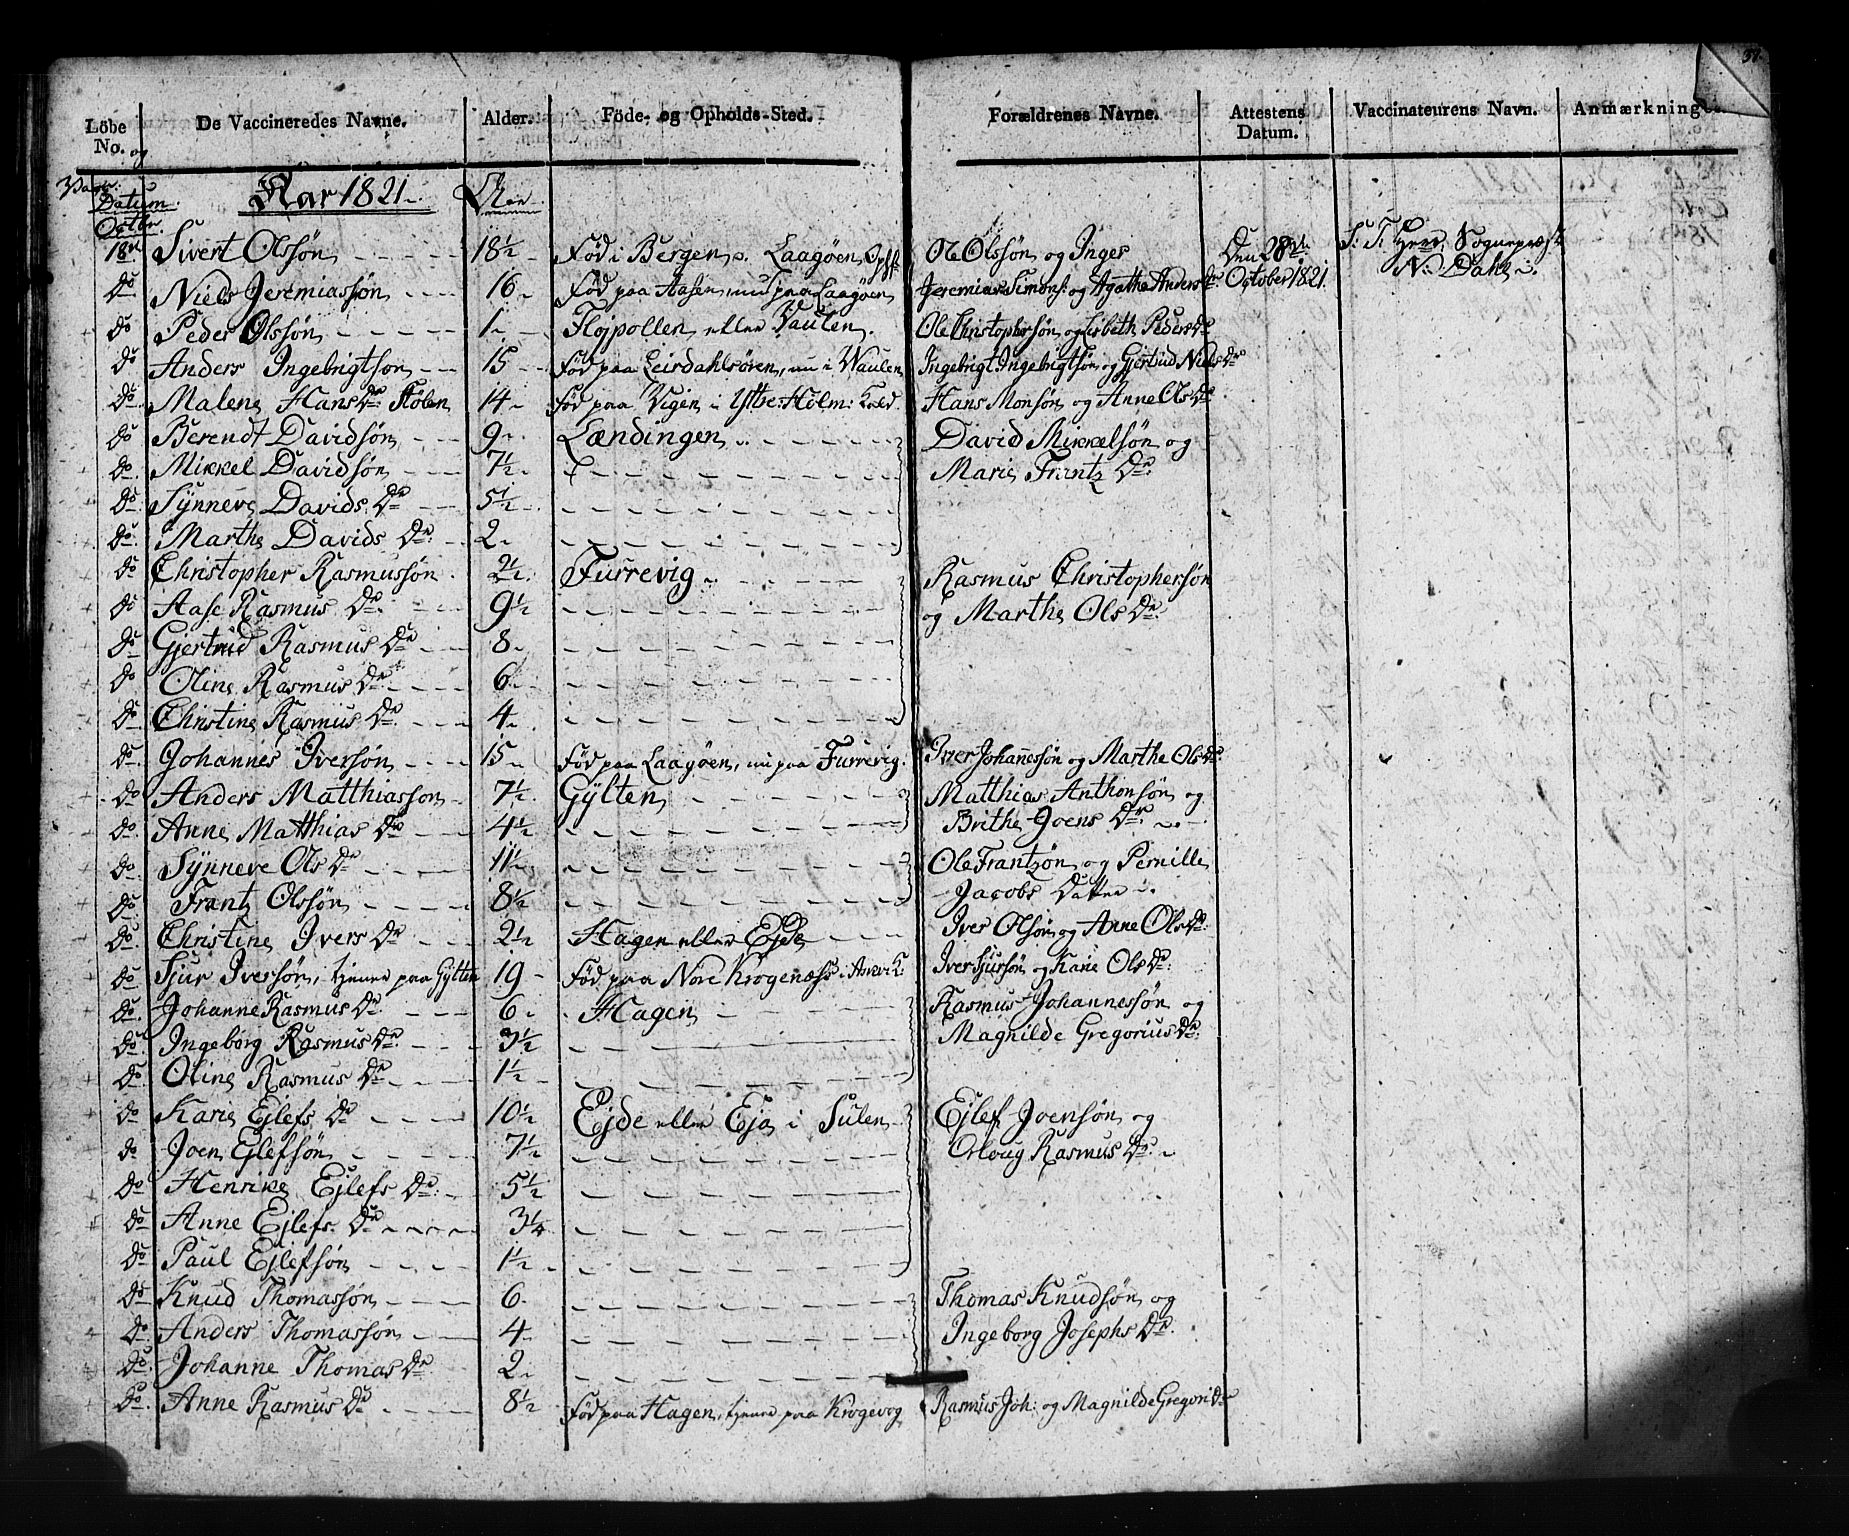 37.
Löbe No. og Datum. | De Vaccineredes Navne. | Alder. | Föde- og Opholds-Sted. | Forældrenes Navne. | Attestens Datum. | Vaccinateurens Navn. | Anmærkninger.
Aar 1821.
Octbr.
18de | Sivert Olssøn | 18½ | Fød i Bergen, Laagøen | Ole Olssøn og Inges | Den 28de | S: T: Herr Sognepræst
do | Niels Jeremiassøn | 16 | Fød paa Aasen, nu paa Laagøen | Jeremias Simons: og Agathe Anders Dr | October 1821. | N. Dahl
do | Peder Olssøn | 1 | Flojpollen eller Vaulen. | Ole Christophersøn og Lisbeth Peders Dr
do | Anders Ingebrigtson | 15 | Fød paa Leirdahlsøren, nu i Waulen | Ingebrigt Ingebrigtsøn og Gjertrud Niels Dr
do | Malene Hans Dr Stolen | 14 | Fød paa Vigen i Ytre: Holm: | Hans Monsøn og Anne Ols Dr
do | Berendt Davidsøn | 9 | Lændingen | David Mikkelsøn og
do | Mikkel Davidsøn | 7½ | Marie Frantz Dr
do | Synneve Davids Dr | 5½
do | Marthe Davids Dr | 2
do | Christopher Rasmussøn | 2½ | Furrevig | Rasmus Christophersøn
do | Aase Rasmus Dr | 9½ | og Marthe Ols Dr
do | Gjertrud Rasmus Dr | 8
do | Oline Rasmus Dr | 6
do | Christine Rasmus Dr | 4
do | Johannes Iversøn | 15 | Fød paa Laagøen, nu paa Furrevig. | Iver Johannessøn og Marthe Ols Dr
do | Anders Matthiasson | 7½ | Gylten | Matthias Anthonsøn og
do | Anne Matthias Dr | 4½ | Brithe Joens Dr
do | Synneve Ols Dr | 11½ | Ole Frantzøn og Pernille
do | Frantz Olssøn | 8½ | Jacobs Datter
do | Christine Ivers Dr | 2½ | Hagen eller Ejde | Iver Olsøn og Anne Ols Dr
do | Sjur Iversøn, tjener paa Gylten | 19 | Fød paa Nore Krogenæss i | Iver Sjursøn og Karie Ols Dr
do | Johanne Rasmus Dr | 6 | Hagen | Rasmus Johannessøn og
do | Ingeborg Rasmus Dr | 3½ | Magnilde Gregorius Dr
do | Oline Rasmus Dr | 1½
do | Karie Ejlefs Dr | 10½ | Ejde eller Eja i Sulen | Ejlef Joensøn og
do | Joen Ejlefsøn | 7½ | Orloug Rasmus Dr
do | Henrike Ejlefs Dr | 5½
do | Anne Ejlefs Dr | 3¼
do | Paul Ejlefsøn | 1½
do | Knud Thomassøn | 6 | Thomas Knudsøn og
do | Anders Thomassøn | 4 | Ingeborg Josephs Dr
do | Johanne Thomas Dr | 2
do | Anne Rasmus Dr | 8½ | Fød paa Hagen, tjener paa Krogevog | Rasmus Joh: og Magnilde Gregori Dr